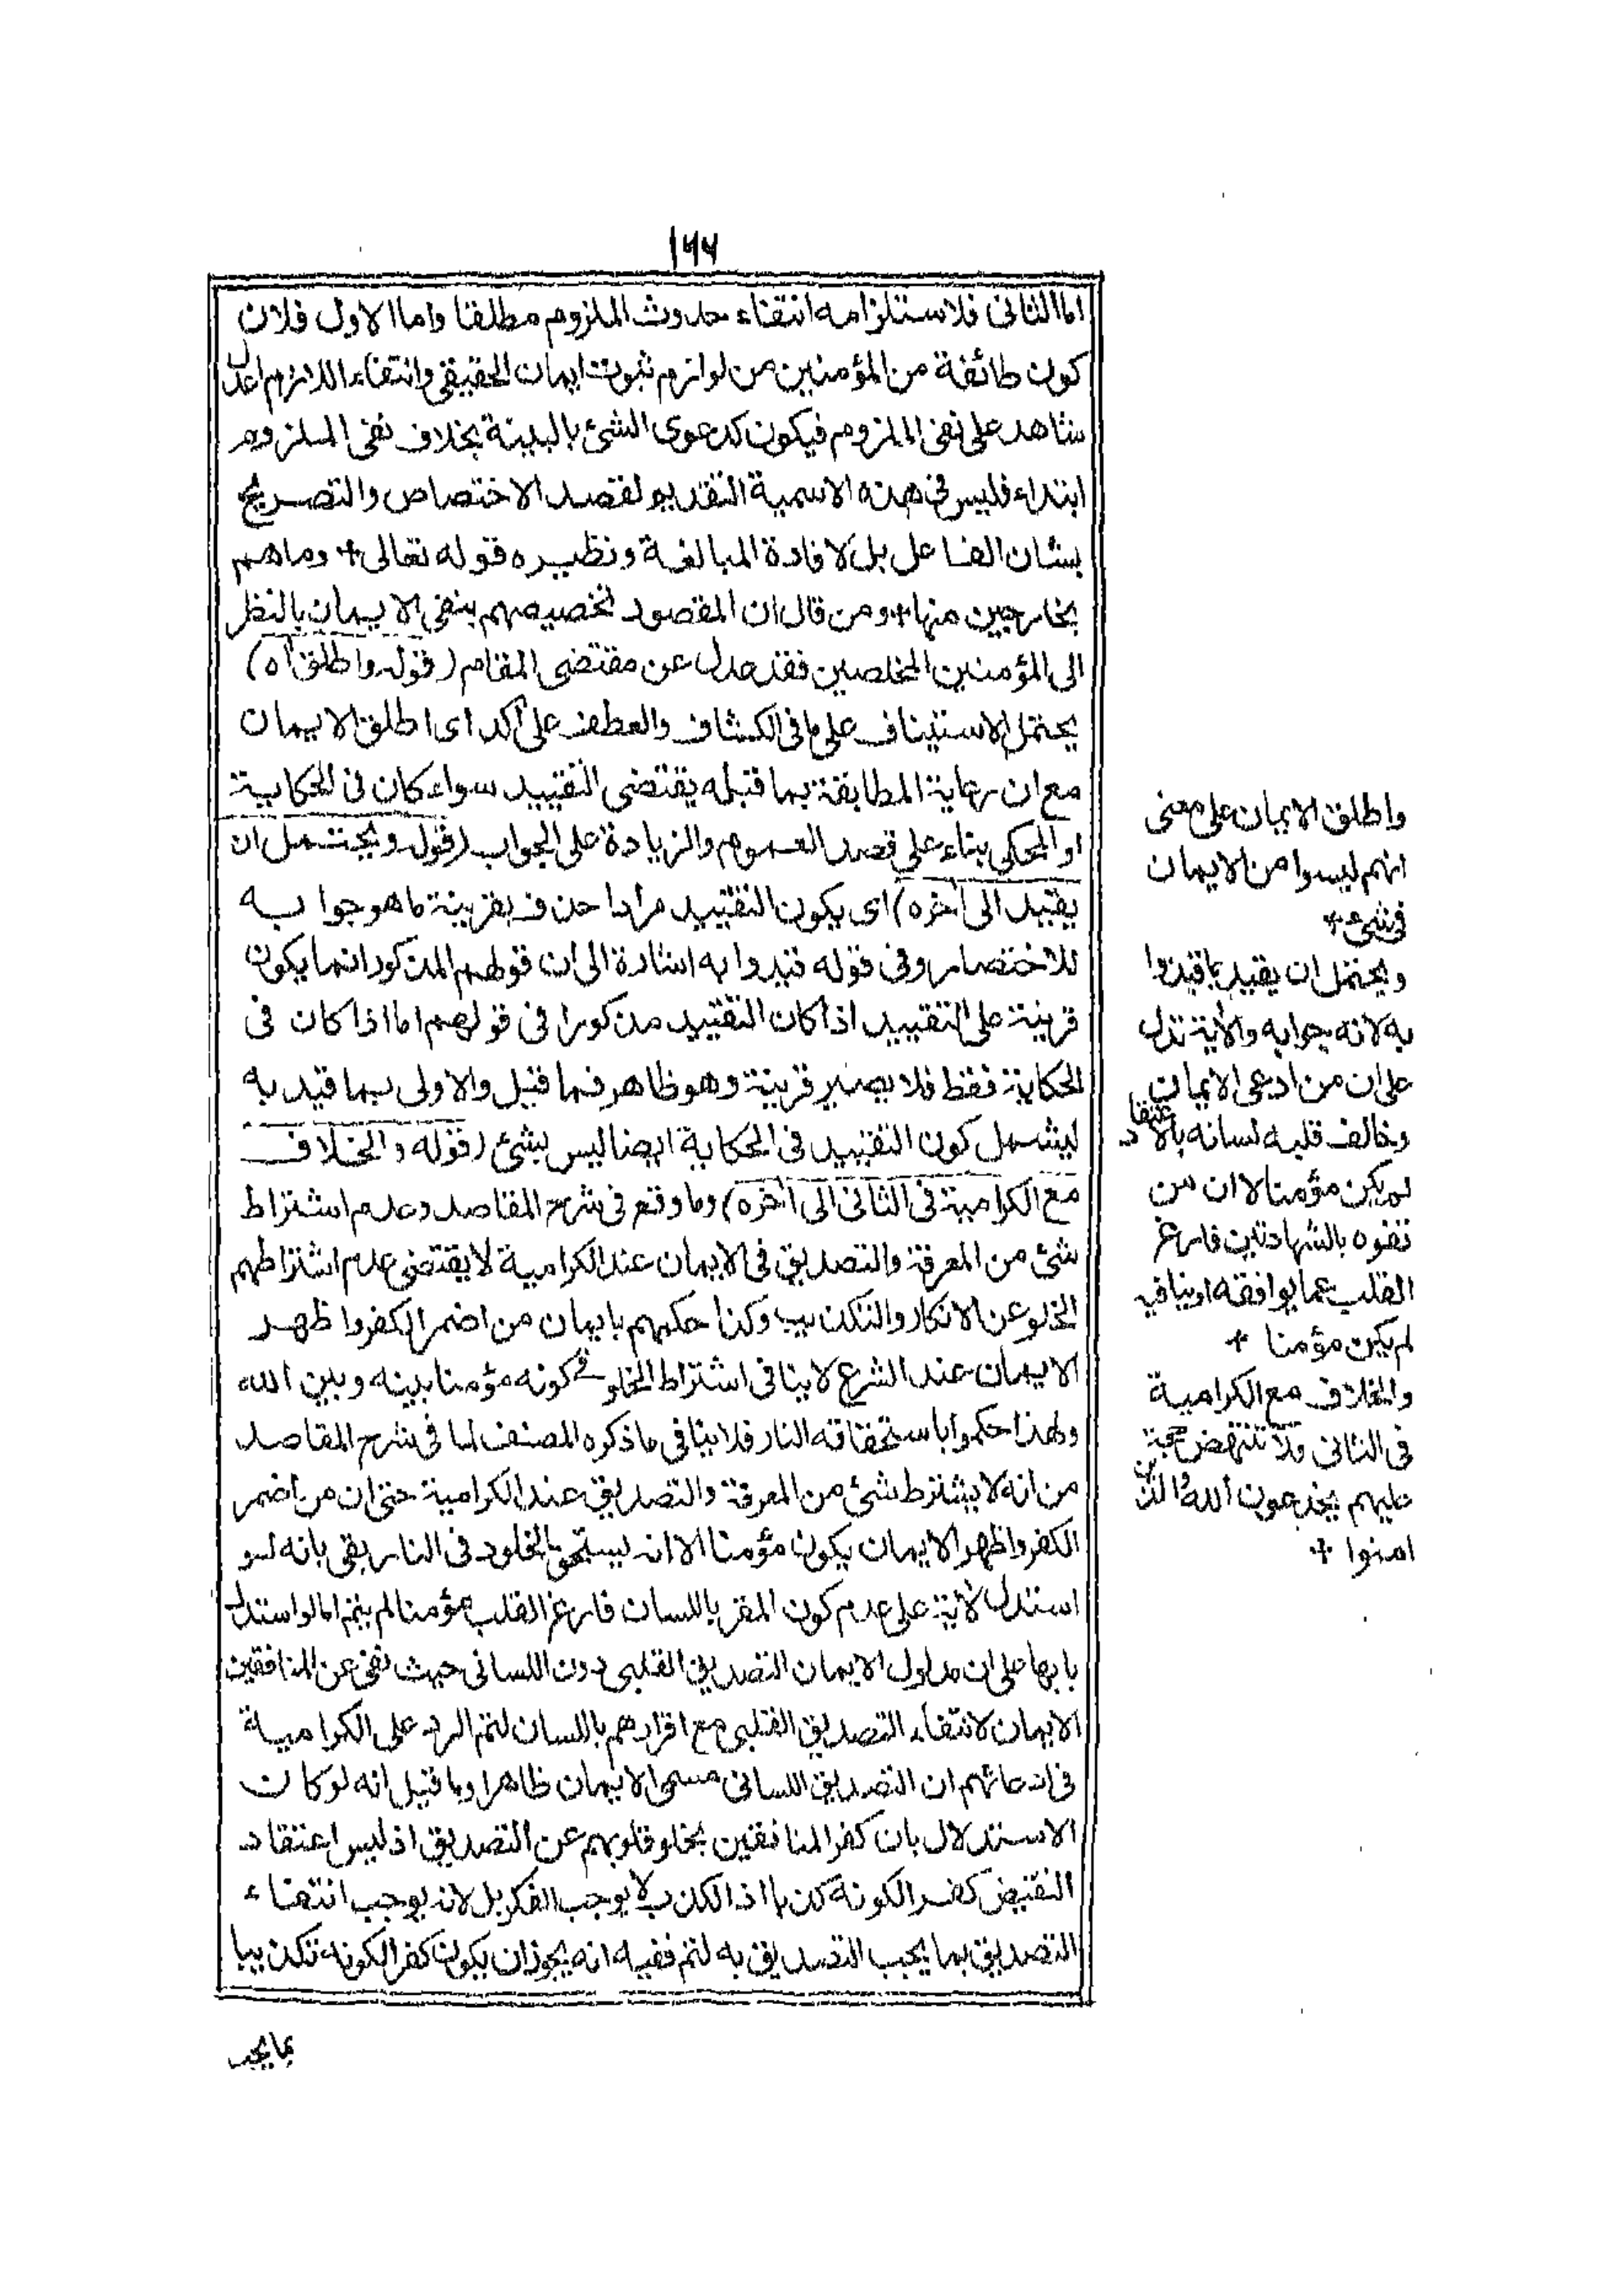 ١٦٦
اما الثانى فلاستلزامه انتفاء حدوث الملزوم مطلقا واما الاول فلان
كون طائفة من المؤمنين من لوازم ثبوت ايمان الحقيقى وانتفاء اللازم اعدل
شاهد على نفى الملزوم فيكون كدعوى الشئ بالبينة بخلاف نفى الملزوم
ابتداء فليس فى هذه الاسمية التقديم لقصد الاختصاص والتصريح
بشان الفاعل بل لافادة المبالغة ونظيره قوله تعالى + وماهم
بخارجين منها + ومن قال ان المقصود تخصيصهم بنفى الايمان بالنظر
الى المؤمنين المخلصين فقد عدل عن مقتضى المقام (قوله واطلق آه)
يحتمل الاستيناف على ما فى الكشاف والعطف على أكد اى اطلق الايمان
مع ان رعاية المطابقة بما قبله يقتضى التقييد سواء كان فى الحكاية
او المحكى بناء على قصد العموم والزيادة على الجواب (قوله ويحتمل ان
يقيد الى آخره) اى يكون التقييد مرادا حذف بقرينة ما هو جوابه
للاختصار وفى قوله قيدوا به اشارة الى ان قولهم المذكور انما يكون
قرينة على التقييد اذا كان التقييد مذكورا فى قولهم اما اذا كان فى
الحكاية فقط فلا يصير قرينة وهو ظاهر فما قيل والاولى بما قيد به
ليشمل كون التقييد فى الحكاية ايضا ليس بشئ (قوله والخلاف
مع الكرامية فى الثانى الى آخره) وما وقع فى شرح المقاصد وعدم اشتراط
شئ من المعرفة والتصديق فى الايمان عند الكرامية لا يقتضى عدم اشتراطهم
الخلو عن الانكار والتكذيب وكذا حكمهم بايمان من اضمر الكفر واظهر
الايمان عند الشرع لا ينافى اشتراط الخلو فى كونه مؤمنا بينه وبين الله
ولهذا حكموا باستحقاقه النار فلا ينافى ما ذكره المصنف لما فى شرح المقاصد
من انه لا يشترط شئ من المعرفة والتصديق عند الكرامية حتى ان من اضمر
الكفر واظهر الايمان يكون مؤمنا الا انه يستحق الخلود فى النار بقى بانه لو
استدل لآية على عدم كون المقر باللسان فارغ القلب مؤمنا لم يتم اما لو استدل
بابها على ان مدلول الايمان التصديق القلبى دون اللسانى حيث نفى عن المنافقين
الايمان لانتفاء التصديق القلبى مع اقرارهم باللسان لتم الرد على الكرامية
فى ادعائهم ان التصديق اللسانى مسمى الايمان ظاهرا وما قيل انه لو كان
الاستدلال بان كفر المنافقين بخلو قلوبهم عن التصديق اذ ليس اعتقاد
النقيض كفرا لكونه كذبا اذ الكذب لا يوجب الفكر بل لانه يوجب انتفاء
التصديق بما يجب التصديق به لتم ففيه انه يجوز ان يكون كفرا لكونه تكذيبا
بما يجب
واطلق الايمان على معنى
انهم ليسوا من الايمان
فى شئ +
ويحتمل ان يقيد بما قيدوا
به لانه جوابه والآية تدل
على ان من ادعى الايمان
وخالف قلبه لسانه بالاعتقاد
لم يكن مؤمنا لا ان من
تفوه بالشهادتين فارغ
القلب عما يوافقه او ينافيه
لم يكن مؤمنا +
والخلاف مع الكرامية
فى الثانى ولا تنتهض حجة
عليهم يخدعون الله والذين
امنوا +